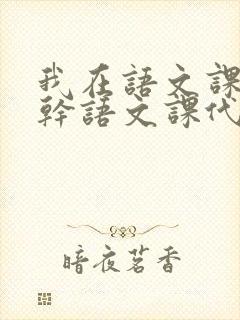 我在語文課
幹語文課代
暗夜茗香